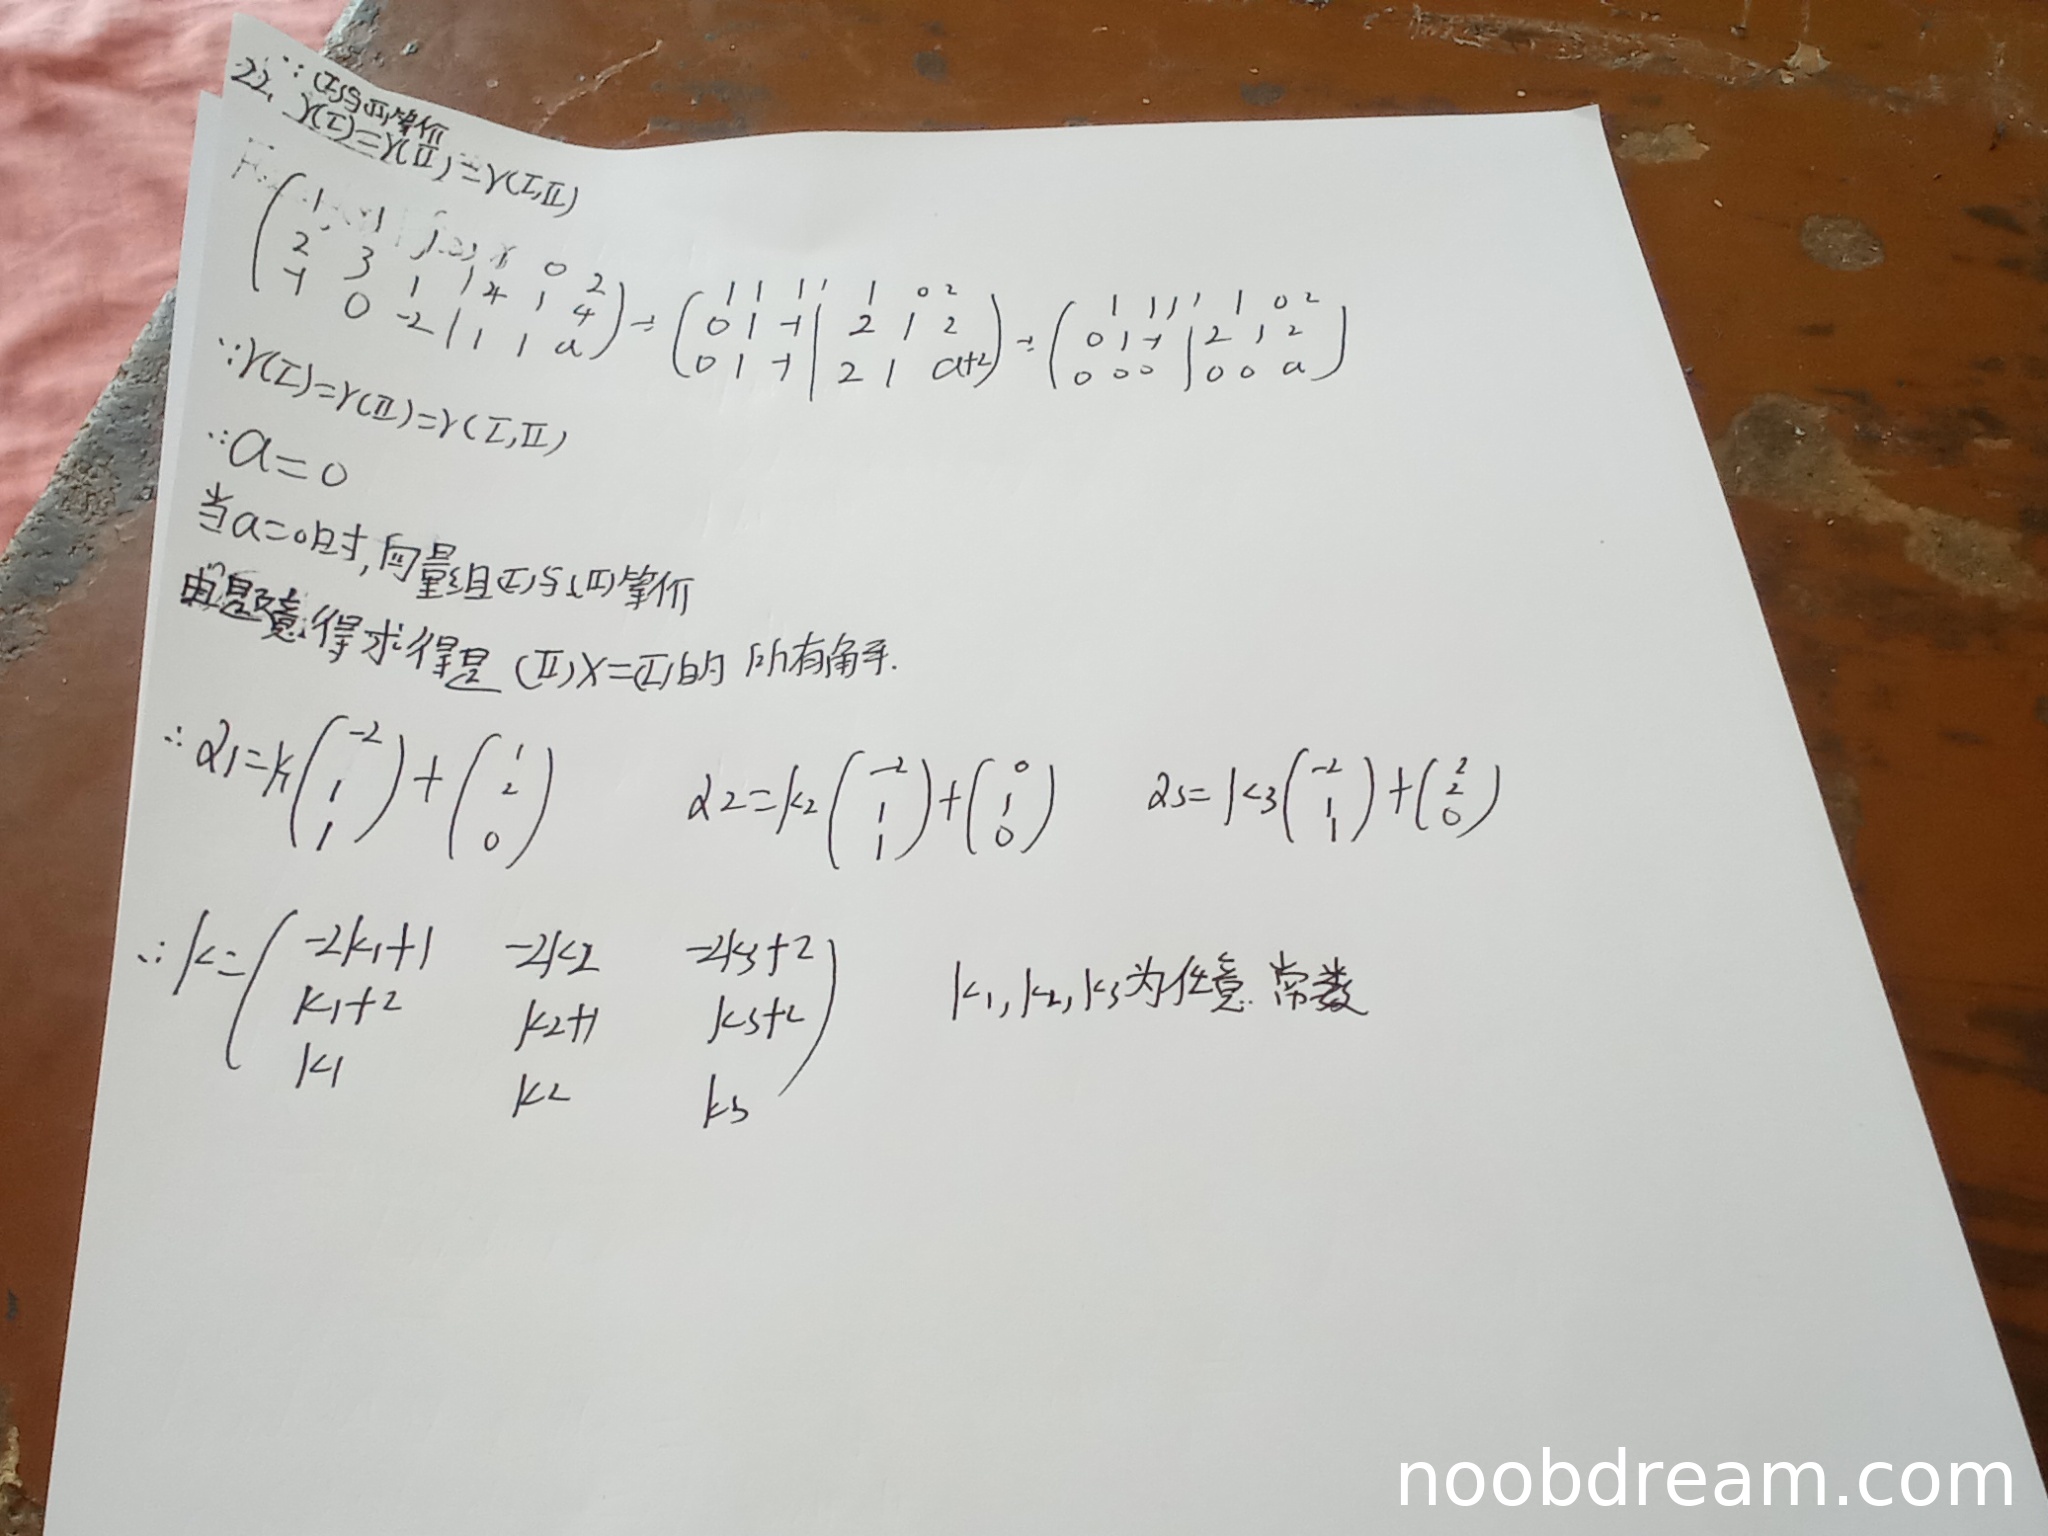 ∵(I)与(II)等价
22. γ(I)=γ(II)=γ(I,II)
( 1 1 1 | 1 0 2
2 3 1 | 4 1 4
-1 0 -2 | 1 1 a ) → ( 1 1 1 | 1 0 2
0 1 -1 | 2 1 2
0 1 -1 | 2 1 a+2 ) → ( 1 1 1 | 1 0 2
0 1 -1 | 2 1 2
0 0 0 | 0 0 a )
∵γ(I)=γ(II)=γ(I,II)
∴a=0
当a=0时,向量组(I)与(II)等价
由题意得求得是 (II)X=(I)的 所有解.
∴α1=k1(-2 1 1)+(1 2 0) α2=k2(-2 1 1)+(0 1 0) α3=k3(-2 1 1)+(2 2 0)
∴k=( -2k1+1 -2k2 -2k3+2
k1+2 k2+1 k3+2
k1 k2 k3 ) k1,k2,k3为任意常数
noobdream.com